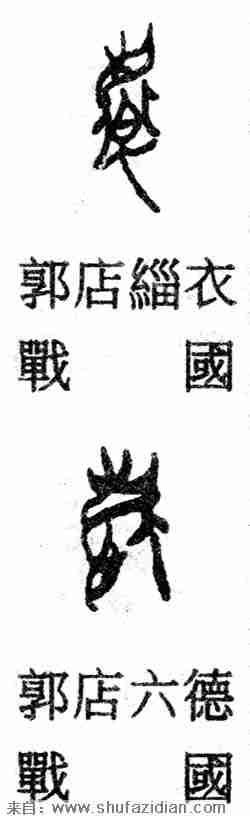 郭店緇衣
戰國
郭店六德
戰國
来自：www.shufazidian.com